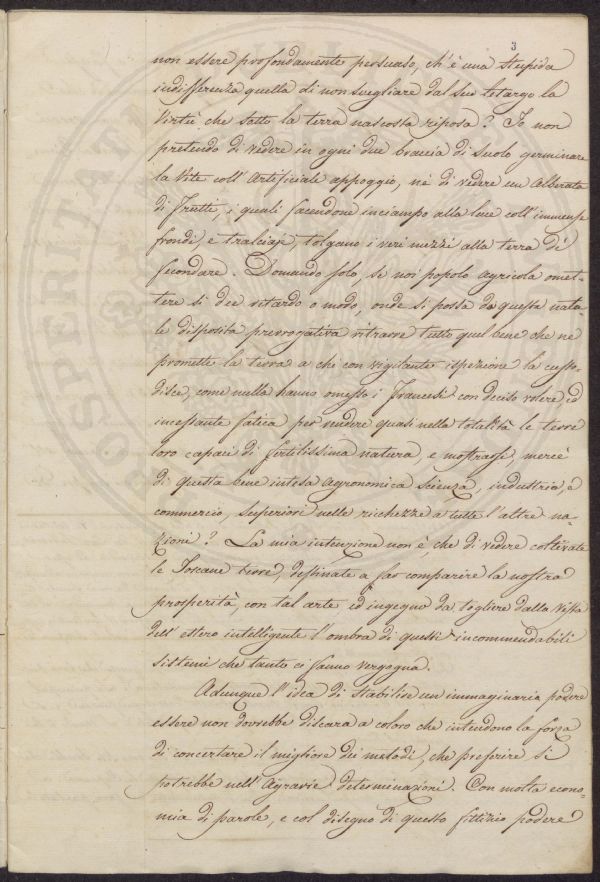 3
non essere profondamente persuaso, ch'è una stupida
indifferenza quella di non svegliare dal suo letargo la
Virtù che sotto la terra nascosta riposa? Io non
pretendo di vedere in ogni due braccia di suolo germinare
la Vite coll'artificiale appoggio, nè di vedere un Alberata
di Frutti, i quali facendone inciampo alla luce coll'immense
frondi, e tralciaje, tolgano i veri mezzi alla terra di
fecondare. Domando solo, se noi popolo agricola omet-
tere si dee ritardo o modo, onde si possa da questa nata-
le disposta prerrogativa ritrarre tutto quel bene che ne
promette la terra a chi con vigilante ispezione la custo-
disce, come nulla hanno omesso i Francesi con deciso volere ed
incessante fatica per rendere quasi nella totalità le terre
loro capaci di fertilissima natura, e mostrarsi, mercè
di questa bene intesa agronomica scienza, industria, e
commercio, superiori nelle richezze a tutte l'altre na-
zioni? La mia intenzione non è, che di vedere coltivate
le Toscane terre, destinate a far comparire la nostra
prosperità, con tal arte ed ingegno da togliere dalla Vista
dell'estero intelligente l'ombra di questi incommendabili
sistemi che tanto ci fanno vergogna.
Adunque l'idea di stabilire un immaginario podere
essere non dovrebbe discara a coloro che intendono la forza
di concertare il migliore dei metodi, che preferire si
potrebbe nell'Agrarie determinazioni. Con molta econo-
mia di parole, e col disegno di questo fittizio podere
PROSPERITATI